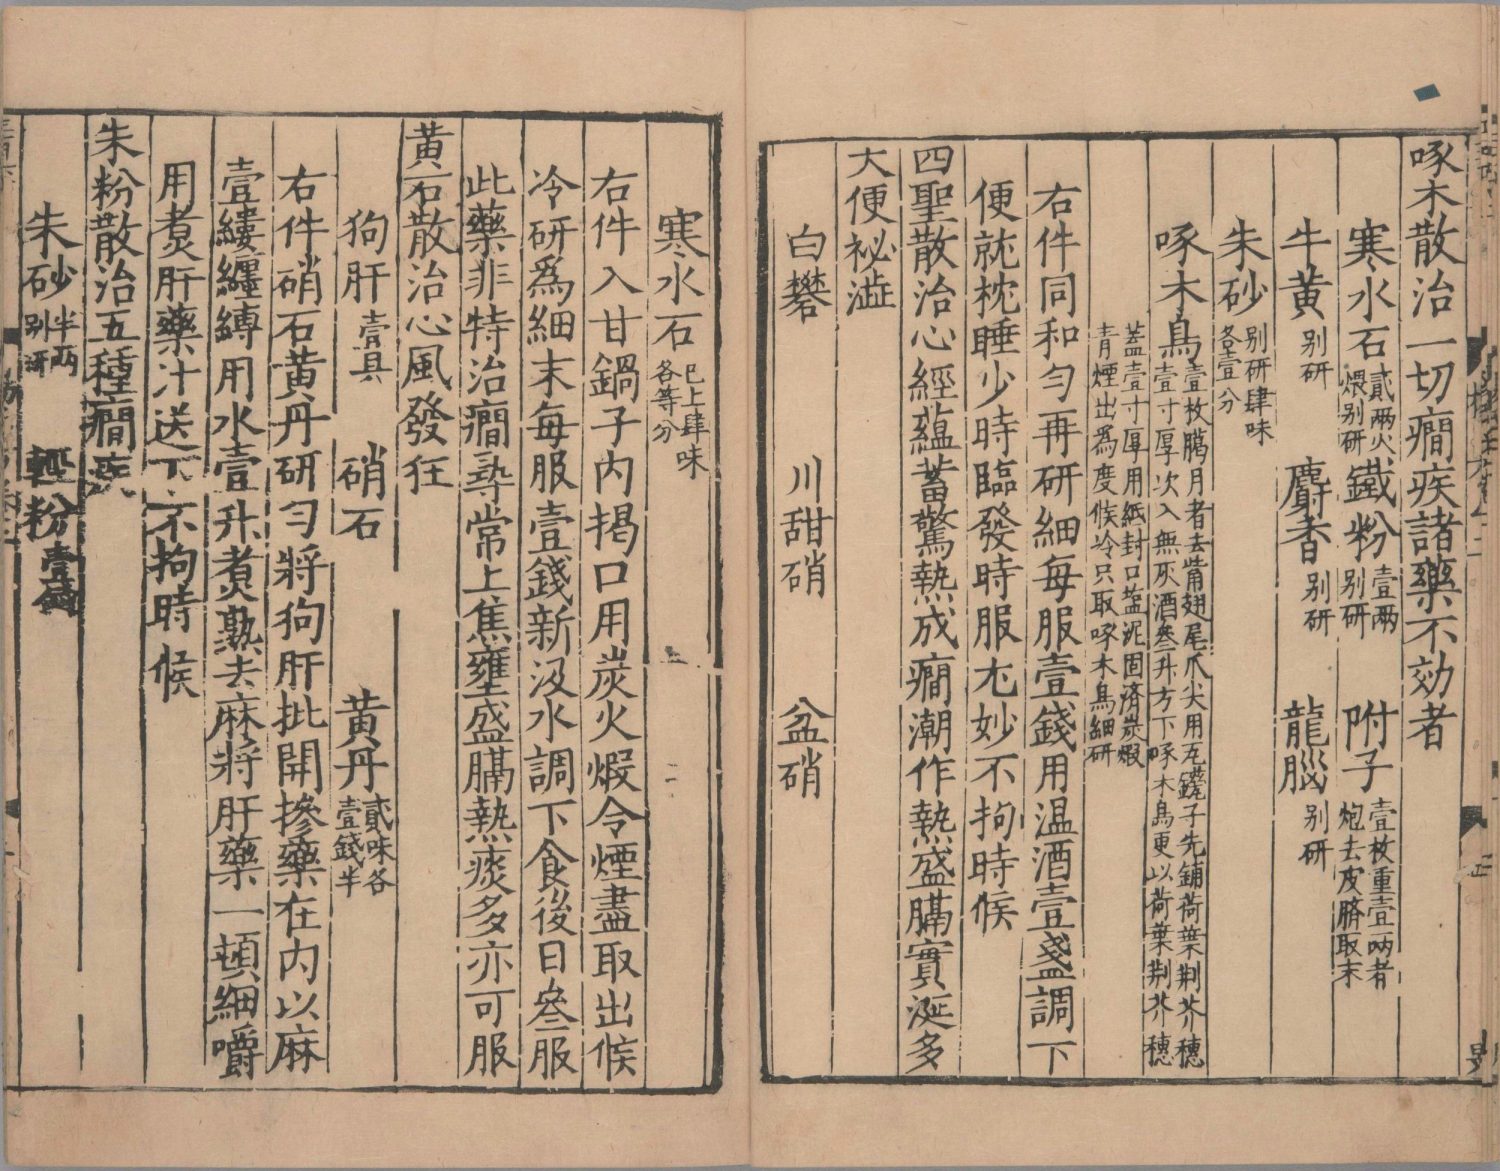 啄木散治一切癇疾諸藥不効者
寒水石貳兩火煅別研 鐵粉壹兩別研 附子壹枚重壹兩者炮去皮臍取末
牛黄別研 麝香別研 龍腦別研
朱砂別研肆味各壹分
啄木鳥壹枚臈月者去觜翅尾爪尖用瓦罐子先鋪荷葉荆芥穗壹寸厚次入無灰酒叁升方下啄木鳥更以荷葉荆芥穗
蓋壹寸厚用紙封口塩泥固濟炭煅青煙出爲度候冷只取啄木鳥細研
右件同和匀再研細每服壹錢用温酒壹盞調下
便就枕睡少時臨發時服尤妙不拘時候
四聖散治心經藴蓄驚熱成癇潮作熱盛膈實涎多
大便祕澁
白礬 川甜硝 盆硝
寒水石已上肆味各等分
右件入甘鍋子内揭口用炭火煅令煙盡取出候
冷研爲細末每服壹錢新汲水調下食後日叁服
此藥非特治癇尋常上焦壅盛膈熱痰多亦可服
黄石散治心風發狂
狗肝壹具 硝石 黄丹貳味各壹錢半
右件硝石黄丹研匀將狗肝批開摻藥在内以麻
壹縷纏縛用水壹升煮熟去麻將肝藥一頓細嚼
用煮肝藥汁送下不拘時候
朱粉散治五種癇疾
朱砂半兩別研 輕粉壹